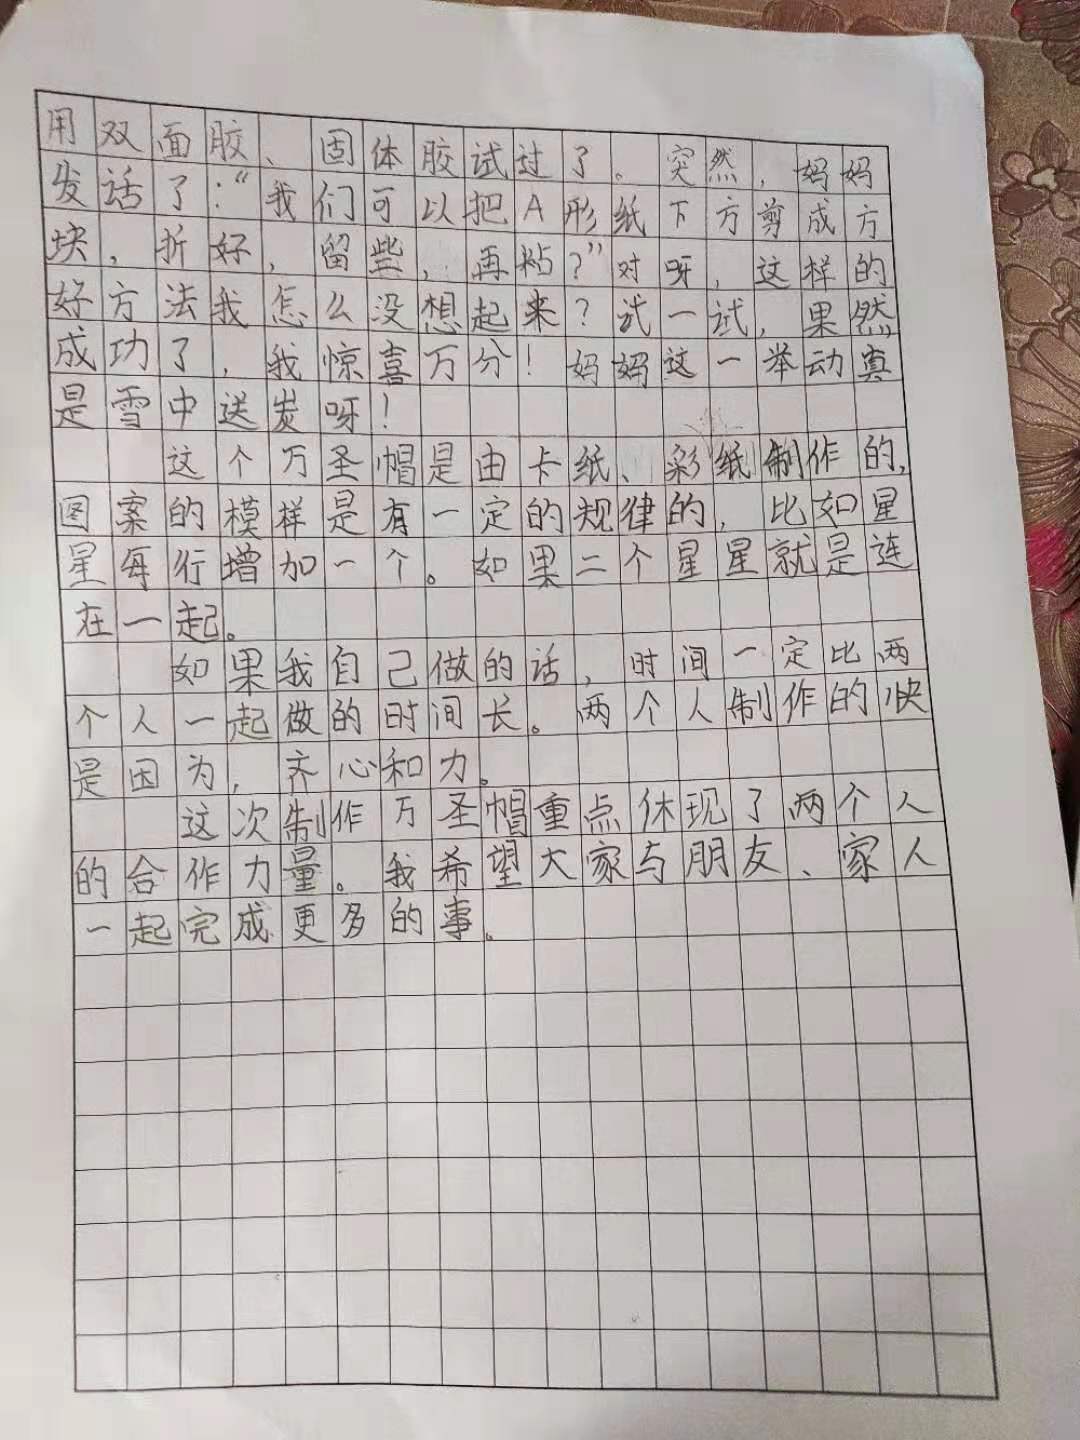 用双面胶、固体胶试过了。突然，妈妈
发话了：“我们可以把A形纸下方剪成方
块，折好，留些，再粘？”对呀，这样的
好方法我怎么没想起来？试一试，果然
成功了，我惊喜万分！妈妈这一举动真
是雪中送炭呀！
这个万圣帽是由卡纸、彩纸制作的，
图案的模样是有一定的规律的，比如星
星每行增加一个。如果二个星星就是连
在一起。
如果我自己做的话，时间一定比两
个人一起做的时间长。两个人制作的快
是因为，齐心和力。
这次制作万圣帽重点体现了两个人
的合作力量。我希望大家与朋友、家人
一起完成更多的事。